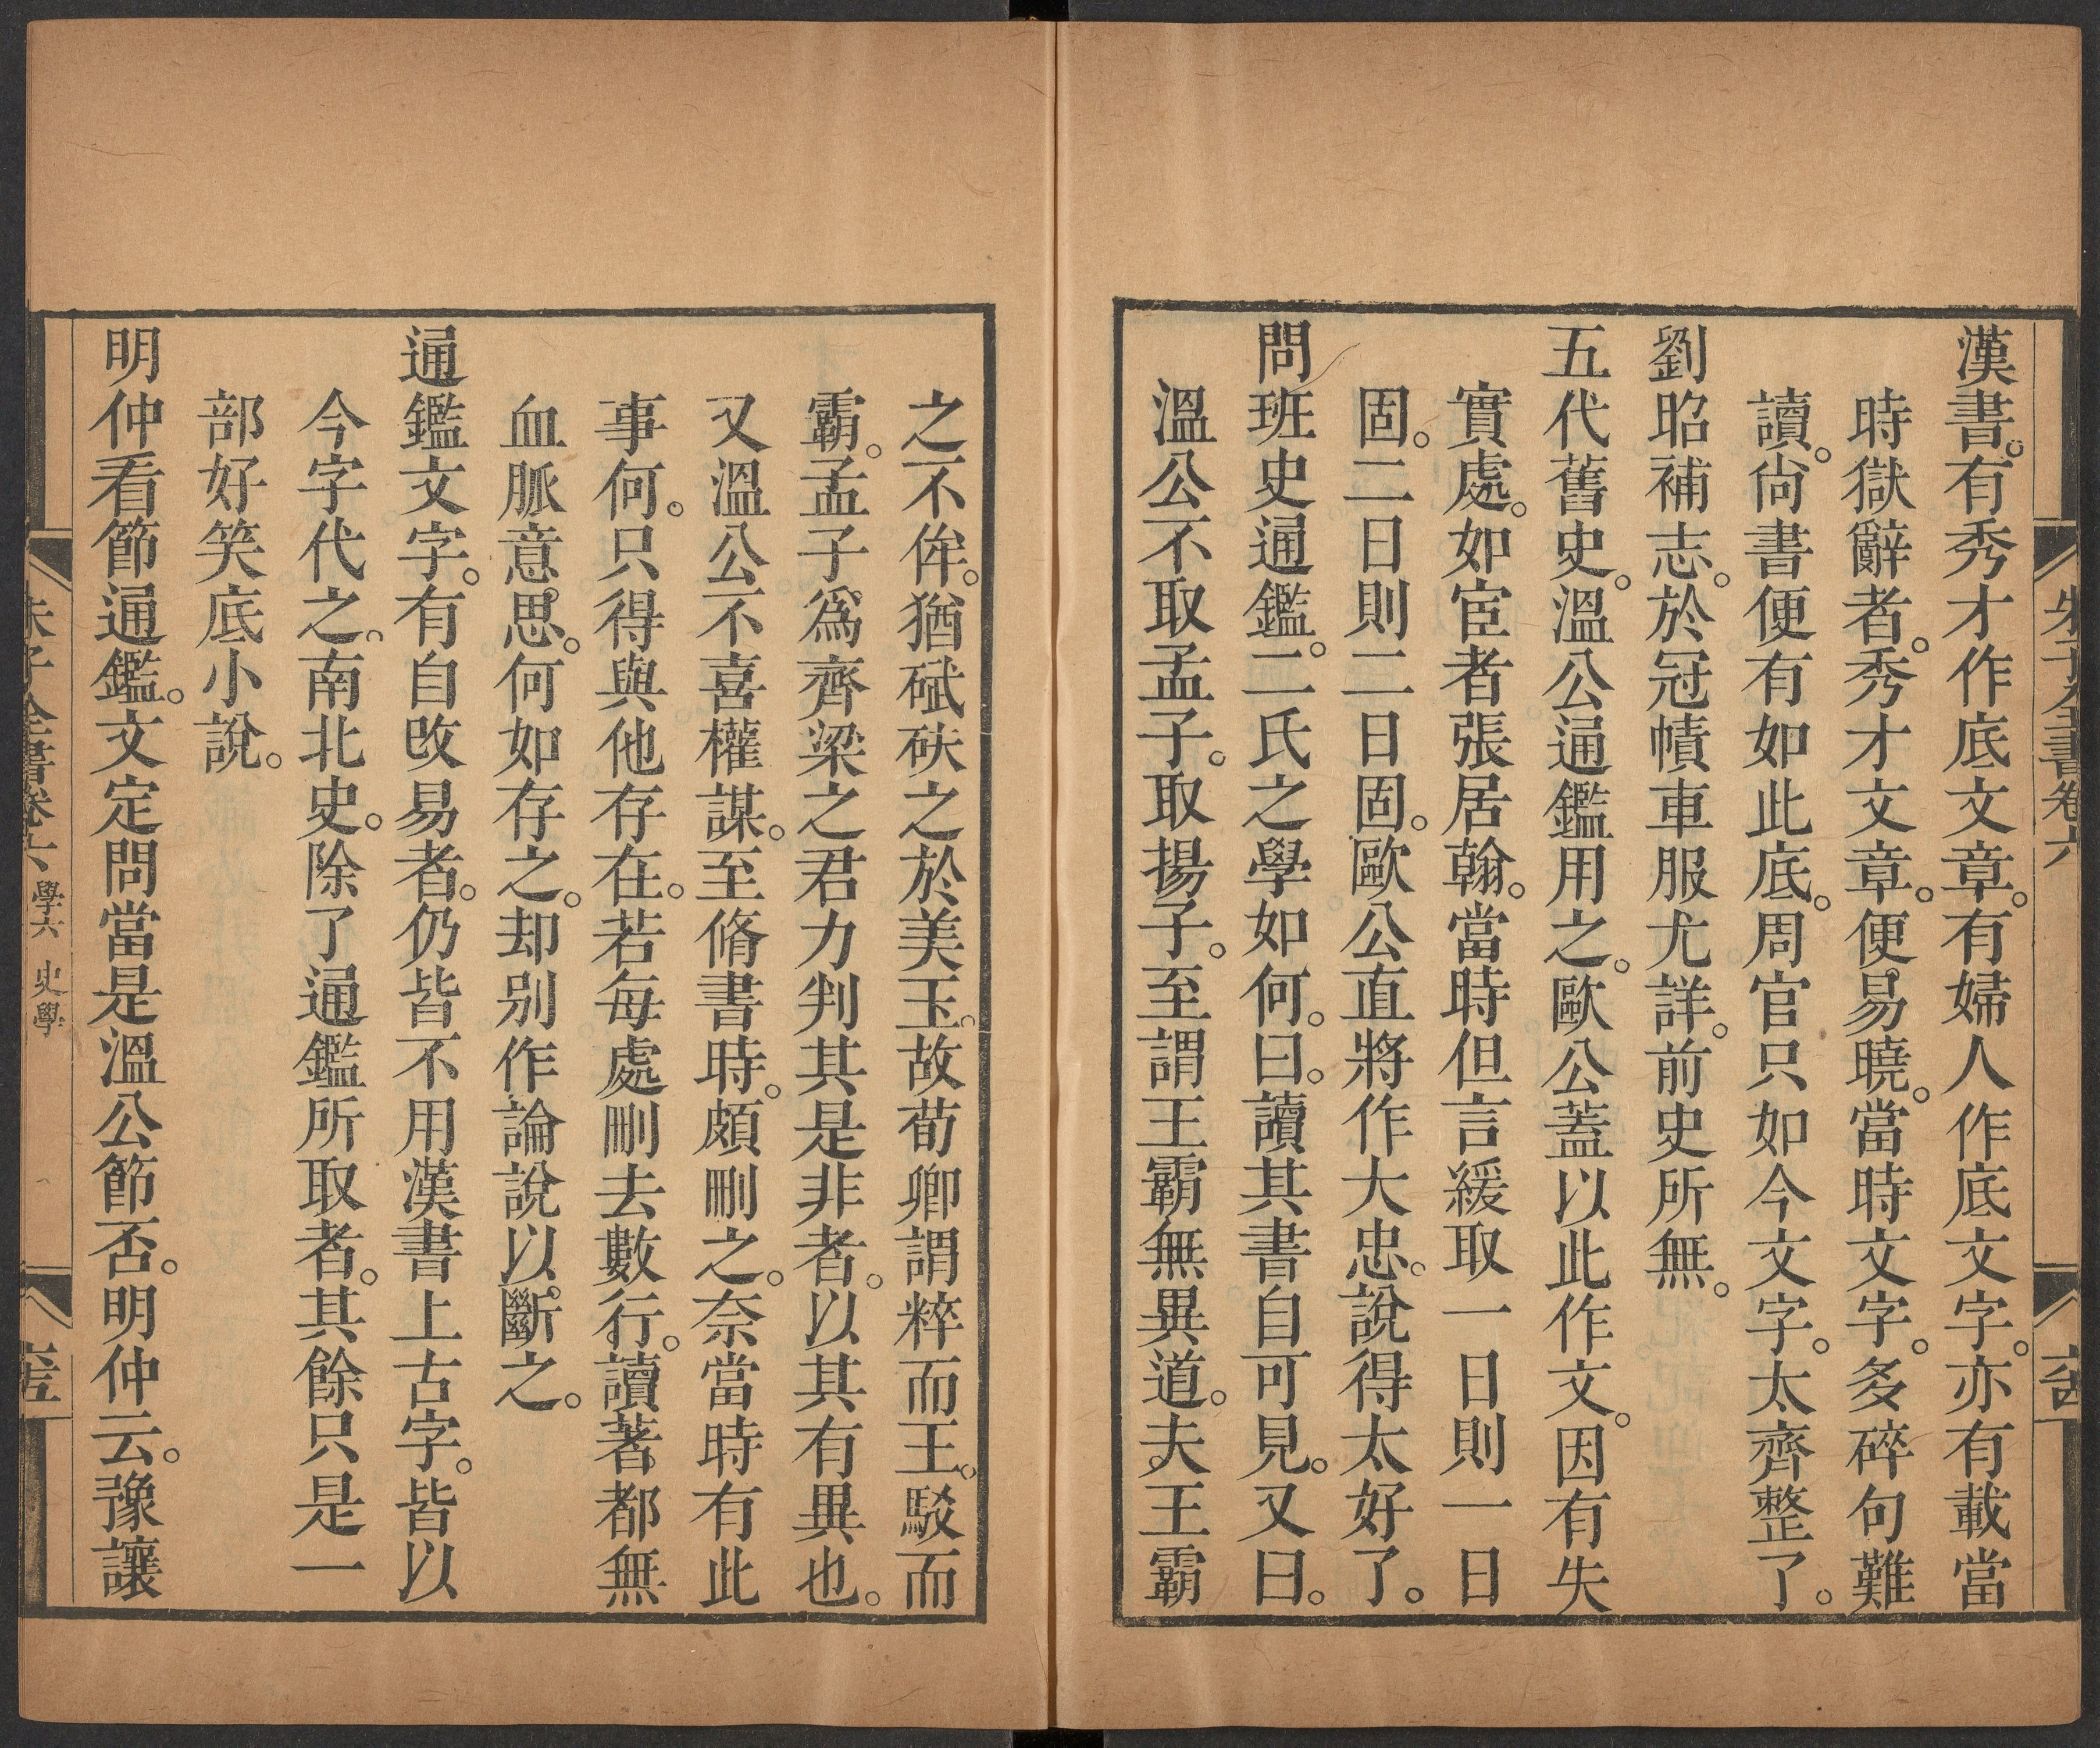 漢書。有秀才作底文章。有婦人作底文字。亦有載當
時獄辭者。秀才文章。便易曉。當時文字。多碎句難
讀。尙書便有如此底。周官只如今文字。太齊整了。
劉昭補志。於冠幘車服尤詳。前史所無。
五代舊史。溫公通鑑用之。歐公蓋以此作文。因有失
實處。如宦者張居翰。當時但言緩取一日則一日
固。二日則二日固。歐公直將作大忠。說得太好了。
問班史通鑑。二氏之學如何。曰。讀其書自可見。又曰。
溫公不取孟子。取揚子。至謂王霸無異道。夫王霸
之不侔。猶碔砆之於美玉。故荀卿謂粹而王。駁而
霸。孟子爲齊梁之君力判其是非者。以其有異也。
又溫公不喜權謀。至脩書時。頗刪之。奈當時有此
事何。只得與他存在。若每處刪去數行。讀著都無
血脈意思。何如存之。却別作論說以斷之。
通鑑文字。有自改易者。仍皆不用漢書上古字。皆以
今字代之。南北史。除了通鑑所取者。其餘只是一
部好笑底小說。
明仲看節通鑑。文定問當是溫公節否。明仲云。豫讓
朱子全書卷六 學六 史學